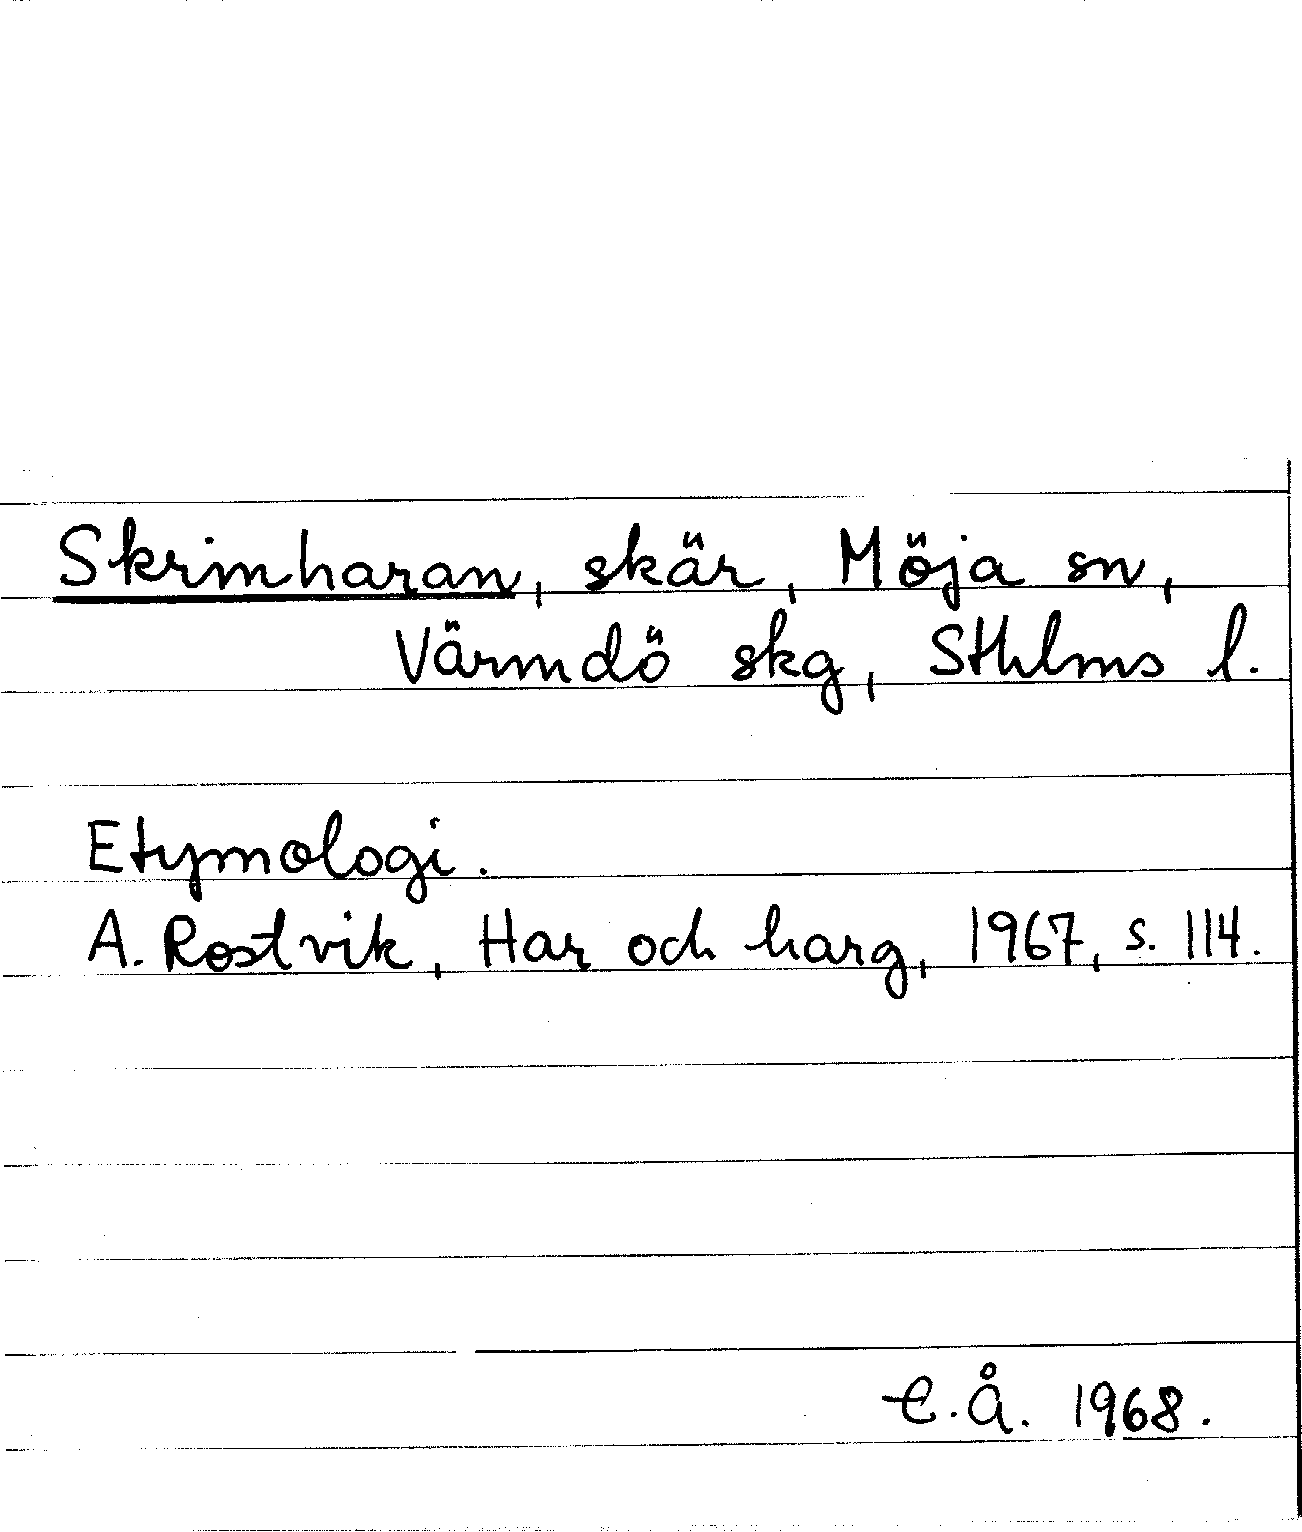 Skrimharan, skär, Möja sn,
Värmdö skg, Sthlms l.
Etymologi.
A. Rostvik, Har och harg, 1967, s. 114.
C.Å. 1968.